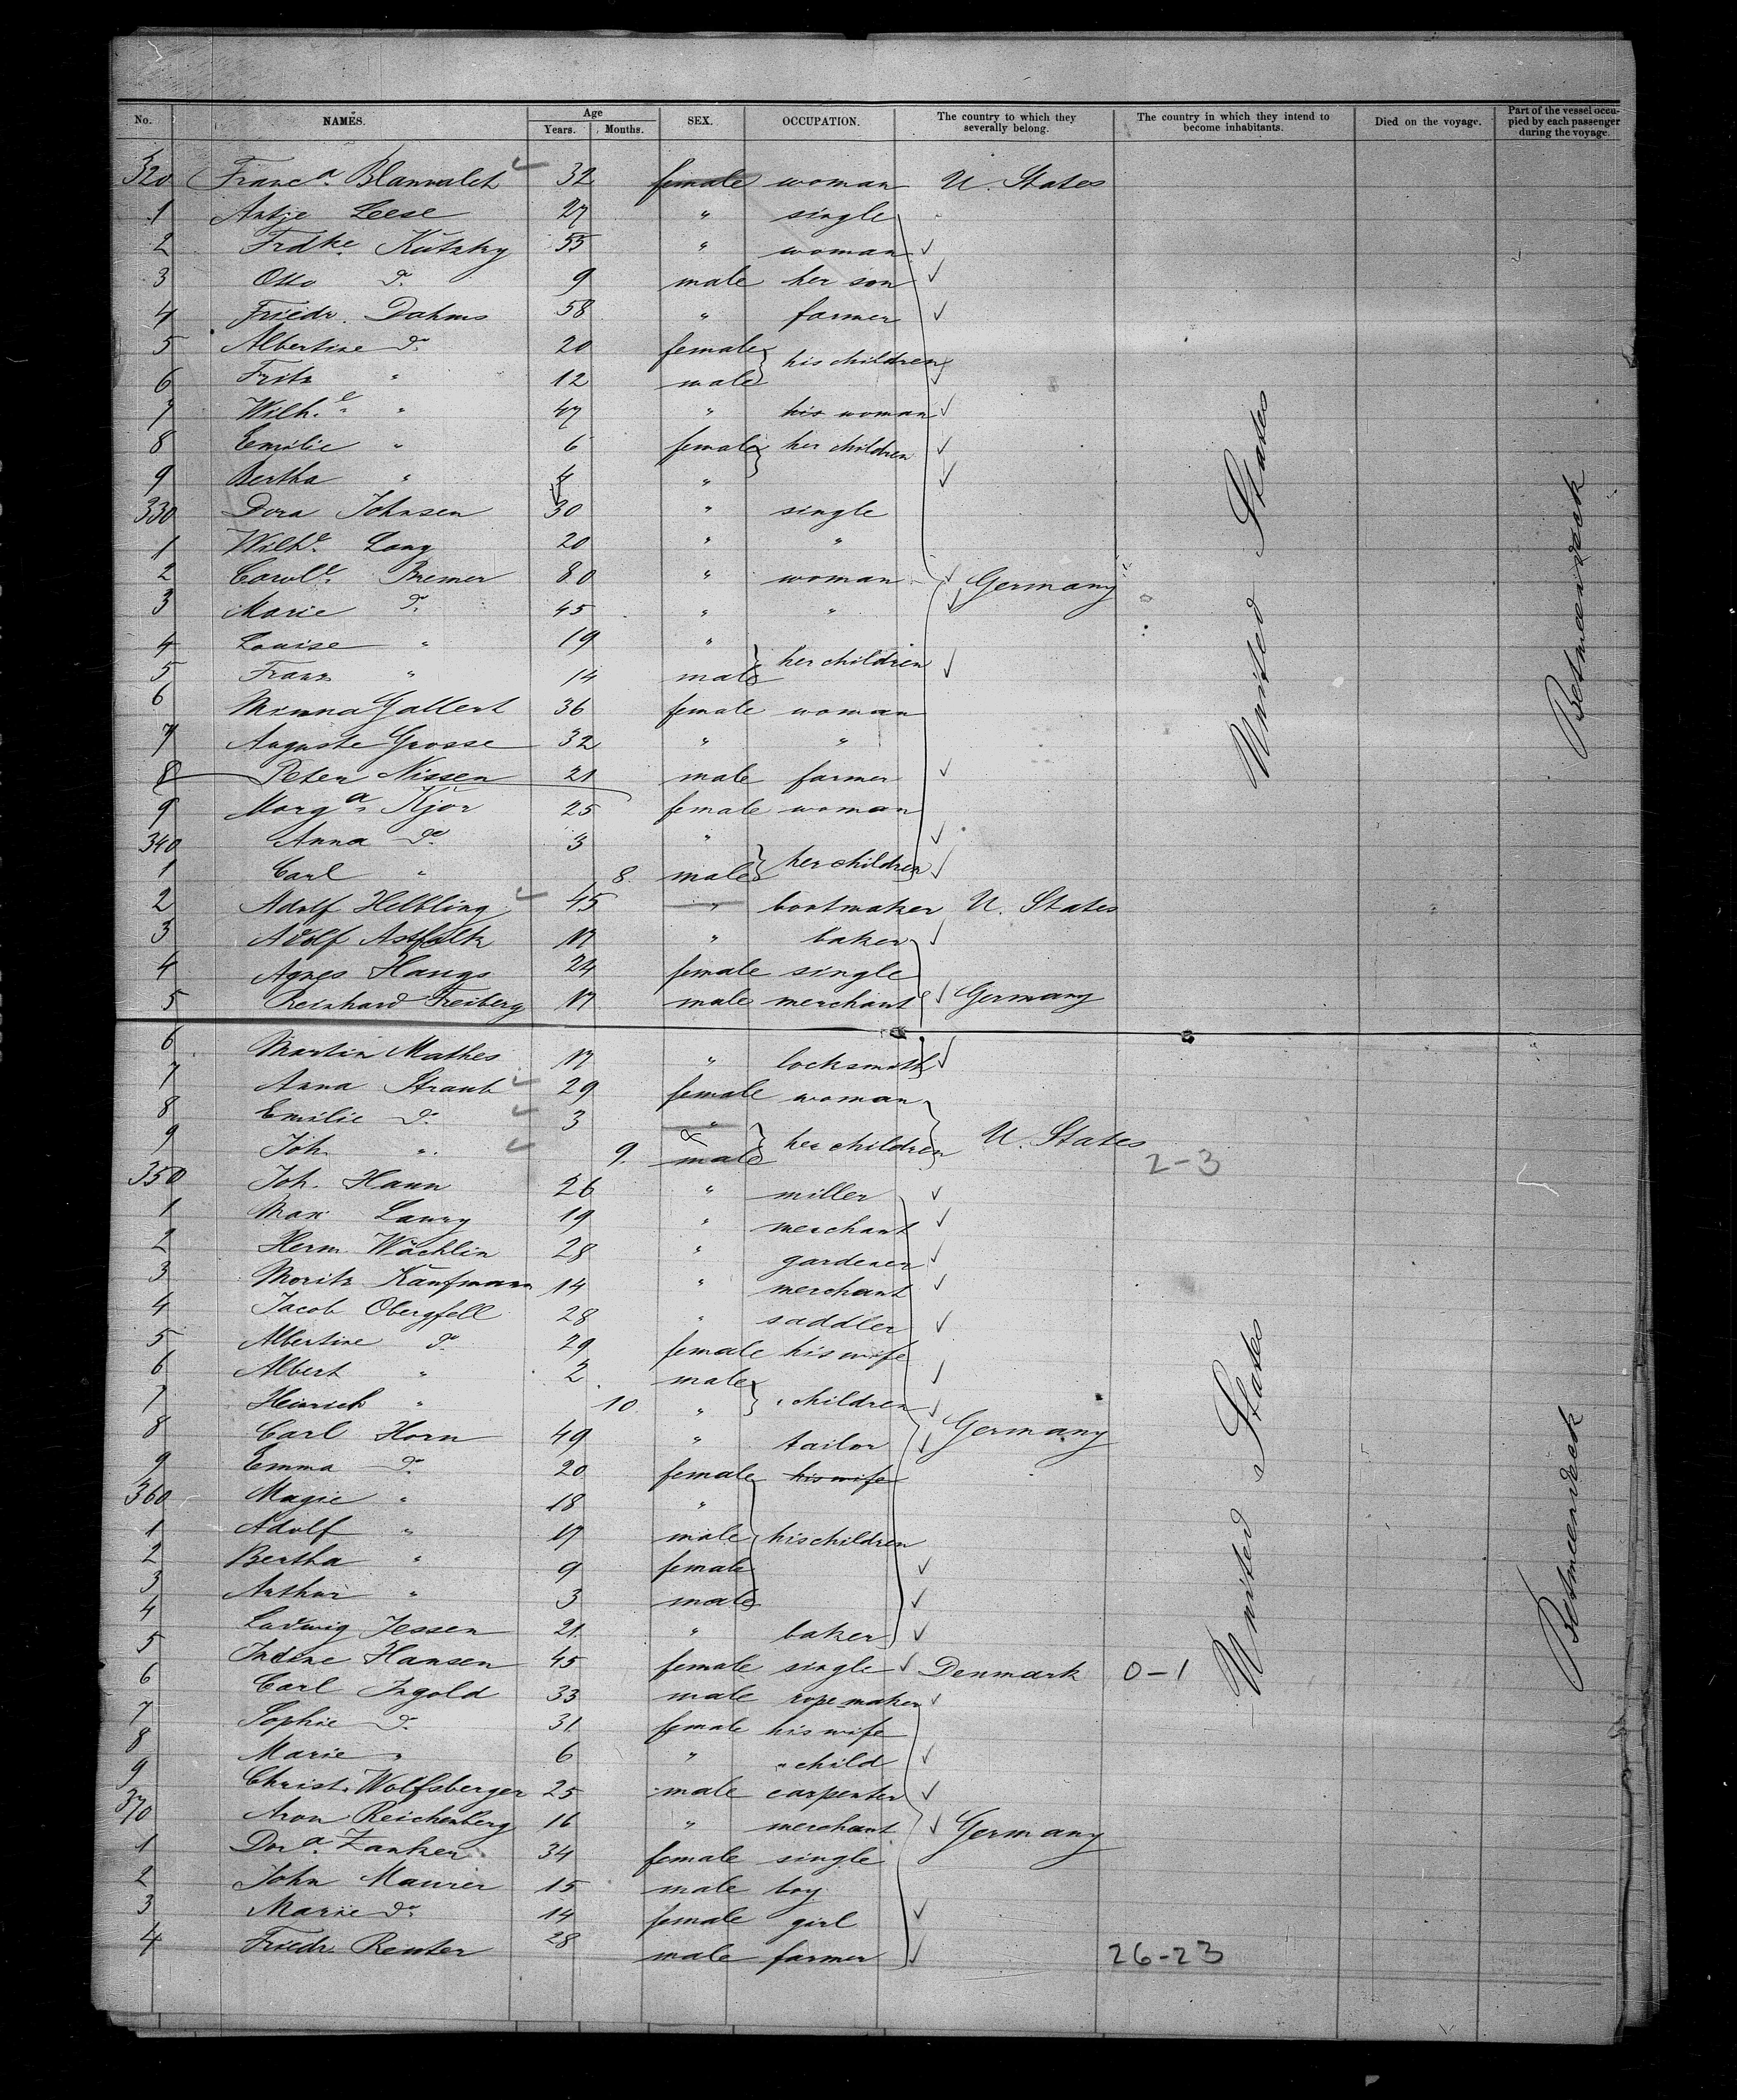 No. NAMES. Age Years. Months. SEX. OCCUPATION. The country to which they severally belong. The country in which they intend to become inhabitants. Died on the voyage. Part of the vessel occupied by each passenger during the voyage.
320 Franca. Blanvalet 32 female woman U. States
1 Antje Leese 27 " single
2 Frdke. Kutzky 55 " woman
3 Otto do. 9 male her son
4 Friedr. Dahms 58 " farmer
5 Albertine do. 20 female his children
6 Fritz " 12 male
7 Wilh.e " 47 " his woman
8 Emilie " 6 female her children
9 Bertha " 4 "
330 Dora Johnsen 30 " single
1 Wilhe. Lang 20 " "
2 Carole. Bremer 80 " woman Germany
3 Marie do. 45 " "
4 Louise " 19 "
5 Franz " 14 male her children
6 Minna Gallert 36 female woman
7 Auguste Grosse 32 " "
8 Peter Nissen 21 male farmer
9 Marga. Kjor 25 female woman
340 Anna do. 3 "
1 Carl " 8. male her children
2 Adolf Helbling 45 " bootmaker U. States
3 Adolf Astfalk 17 " baker
4 Agnes Haugs 24 female single
5 Reinhard Freiberg 17 male merchant Germany
United States
Betweendeck
6 Martin Mathes 17 " locksmith
7 Anna Straub 29 female woman
8 Emilie do. 3 "
9 Joh. " 9. male her children U. States 2-3
350 Joh. Haun 26 " miller
1 Max Laury 19 " merchant
2 Herm. Wächlin 28 " gardener
3 Moritz Kaufmann 14 " merchant
4 Jacob Obergfell 28 " saddler
5 Albertine do. 29 female his wife
6 Albert " 2 male
7 Heinrich " 10 " " children
8 Carl Horn 49 " tailor Germany
9 Emma do. 20 female his wife
360 Magie " 18 "
1 Adolf " 17 male his children
2 Bertha " 9 female
3 Arthur " 3 male
4 Ludwig Jessen 21. " baker
5 Hansen 45 female single Denmark 0-1
6 Carl Ingold 33 male rope maker
7 Sophie do. 31 female his wife
8 Marie " 6 " " child
9 Christ. Wolfsberger 25 male carpenter
370 Aron Reichenberg 16 " merchant Germany
1 Dora. Zanker 34 female single
2 John Maurer 15 male boy
3 Marie do. 14 female girl
4 Friedr. Reuter 28 male farmer 26-23
United States
Betweendeck